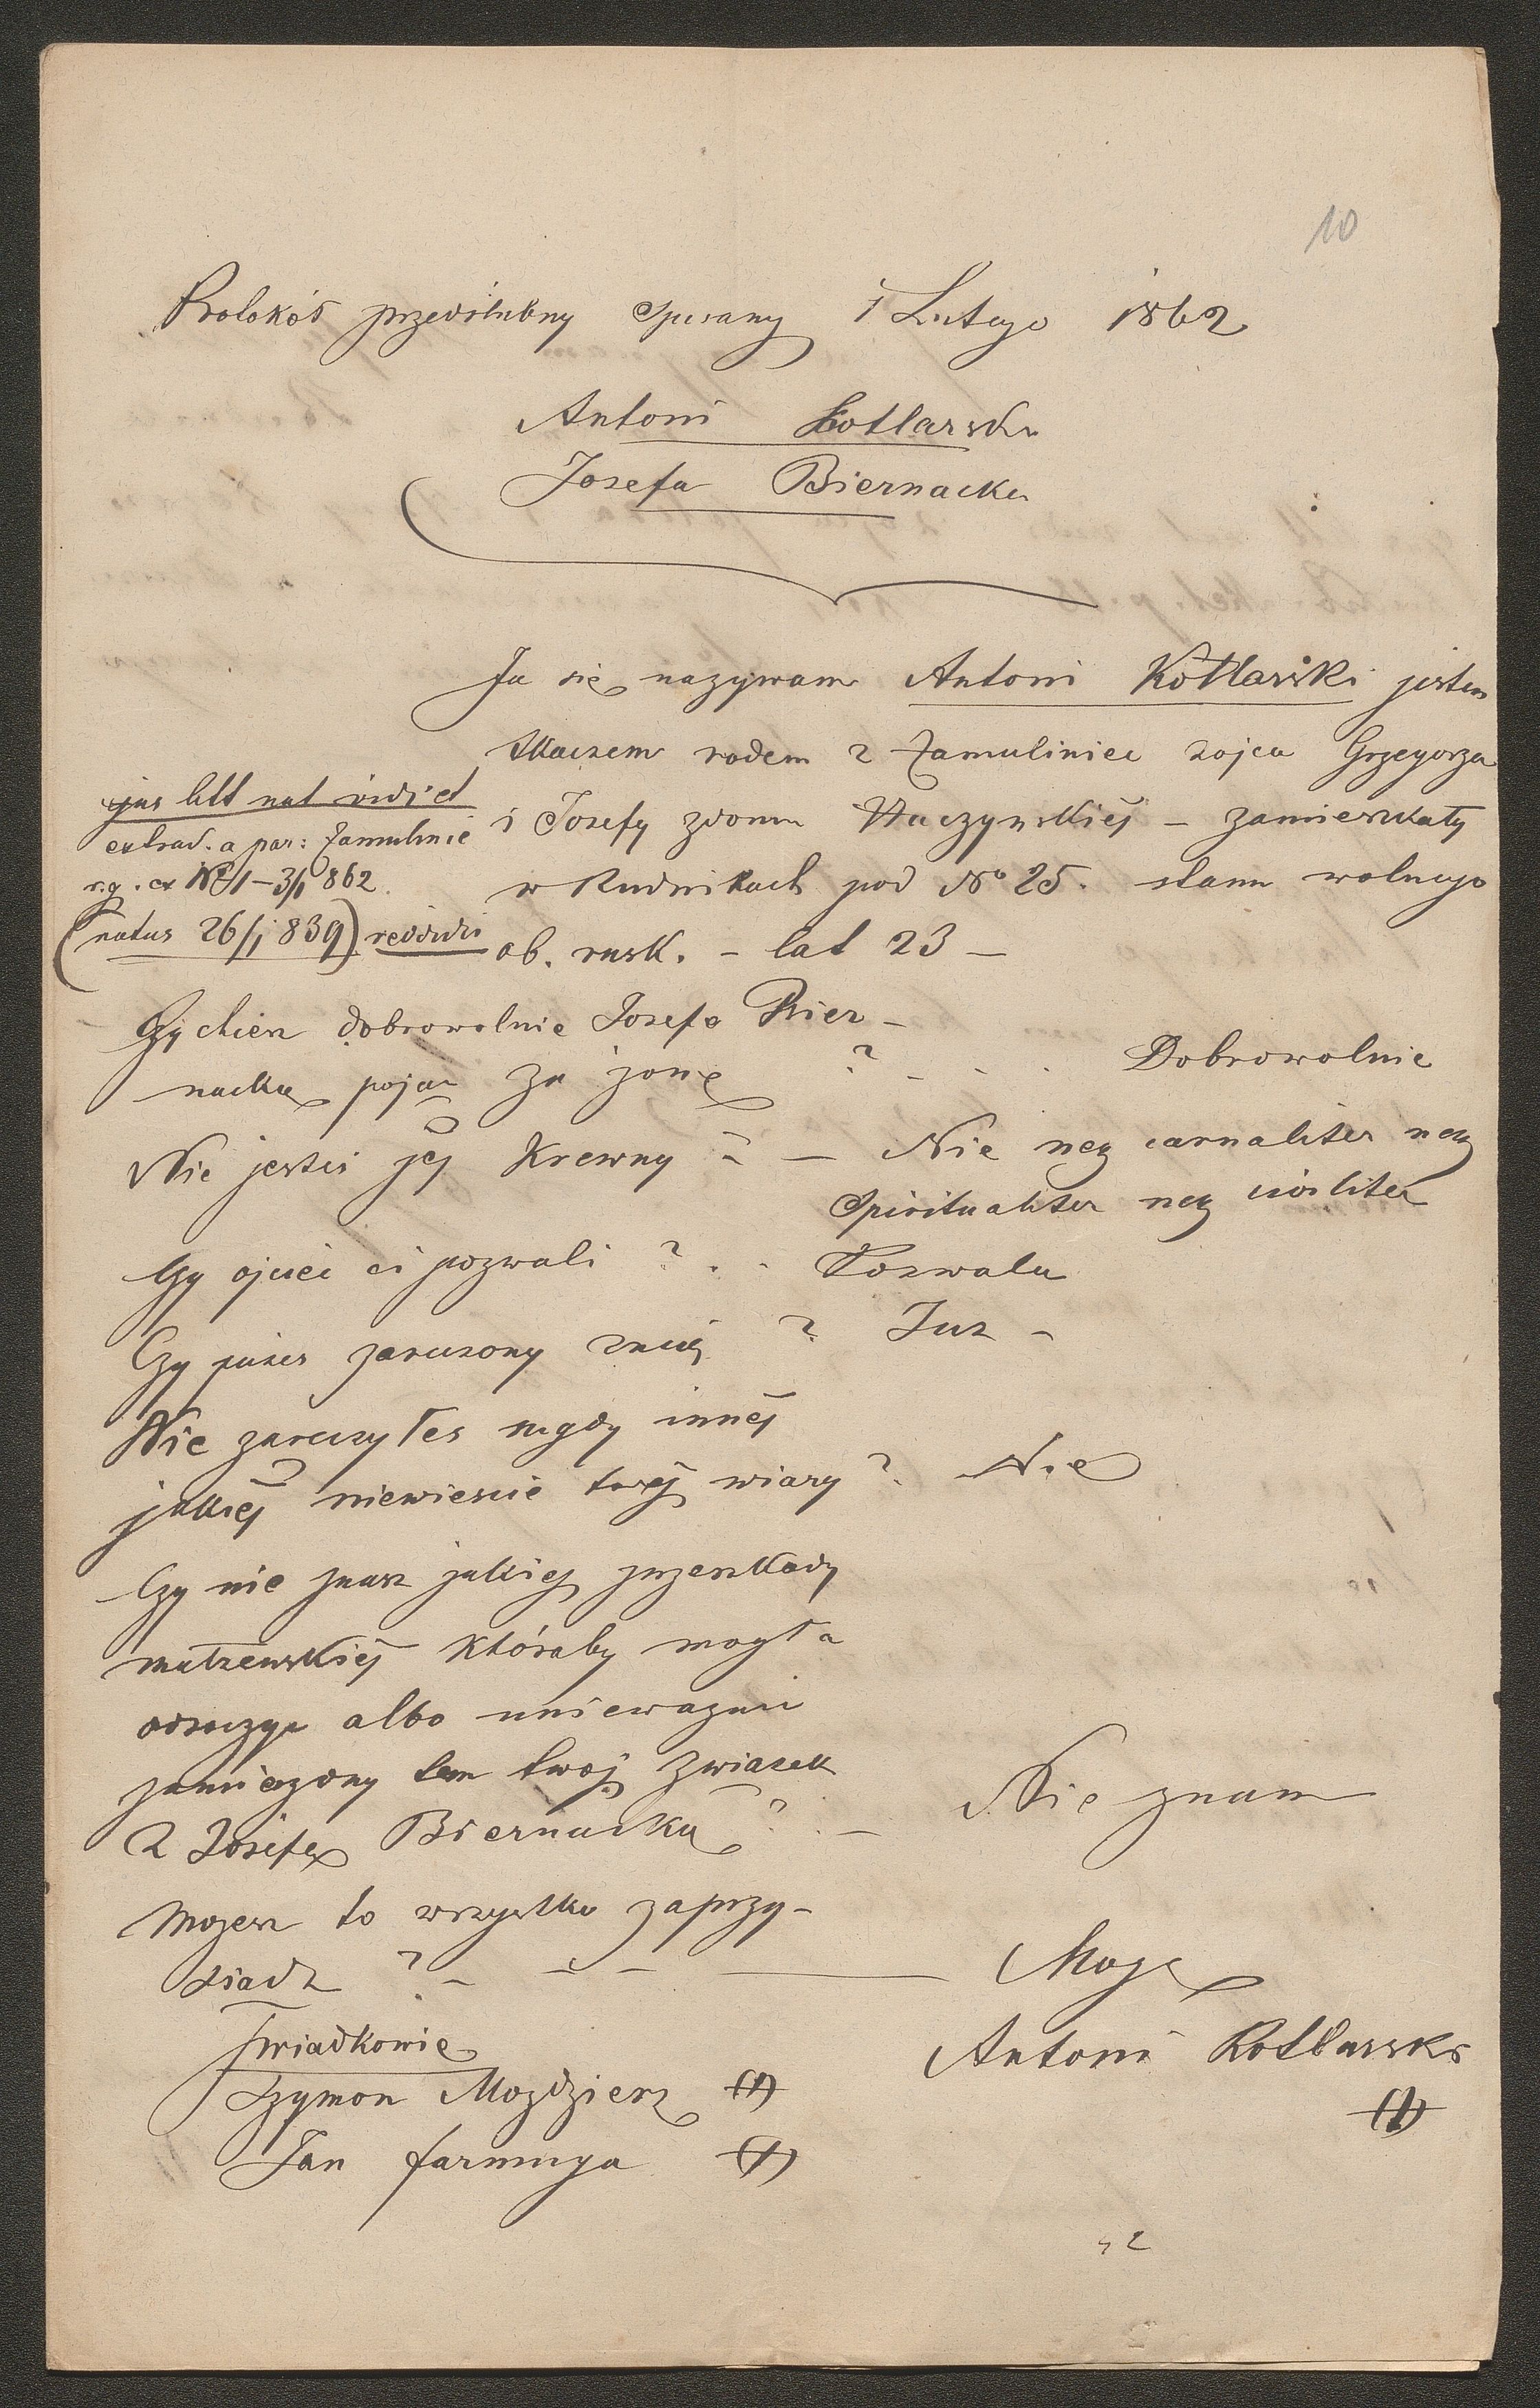 10
Protokół przedślubny spisany 1 Lutego 1862
Antoni Kotlarski
Josefa Biernacka
Ja się nazywam Antoni Kotlarski jestem
tkaczem rodem z Zamuliniec z ojca Grzegorza
i Josefy z domu Haczyńskiéj – zamieszkały
w Rudnikach pod No 25. stanu wolnego
ob. rusk. – lat 23 –
ejus litt nat vidi et
extrad. a par: Zamulinie
r.g. ex No 1 – 3/1 862
(natus 26/1 839) reddidi
Czy chcesz dobrowolnie Josefę Bier-
nacką pojąć za żonę ? – . . Dobrowolnie
Nie jesteś jéj Krewny ? – Nie neq carnaliter neq
spiritualiter neq civiliter
Czy ojciec ci pozwali ? . . Pozwala
Czy jużeś zaręczony z nią ? Juz –
Nie zaręczyłeś nigdy innéj
jakiéj niewieście twéj wiary ? Nie
Czy nie znasz jakiej przeszkody
małżeńskiéj któraby mogła
odroczyć albo unieważnić
zamierzony ten twój związek
z Josefą Biernacką ? . – Nie znam
Możesz to wszystko zaprzy-
siądz ? – – – Mogę
Świadkowie
Antoni Kotlarski
Szymon Mozdzierz (+)
(+)
Jan Farmuga (+)